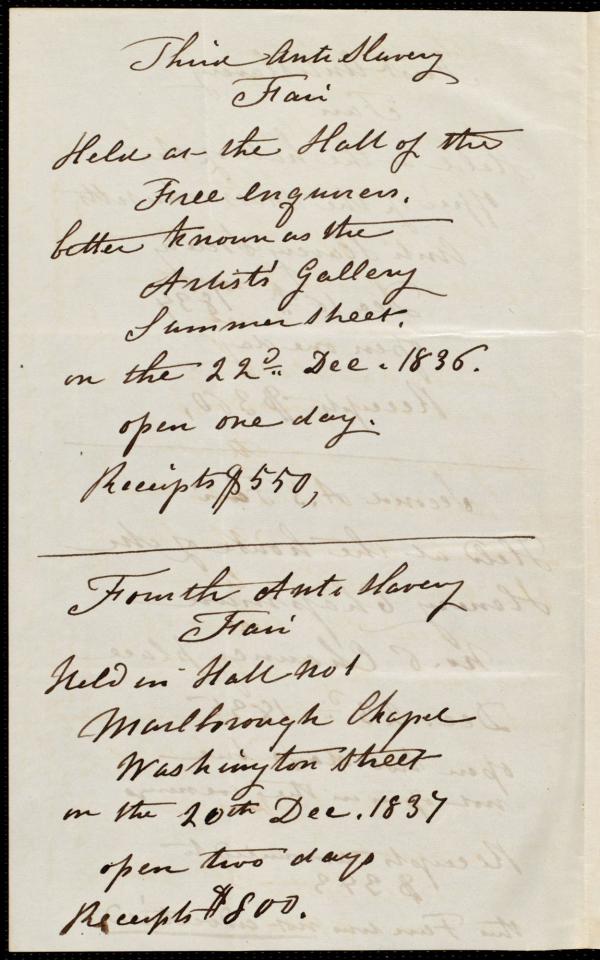 Third Anti Slavery
Fair
Held at the Hall of the
Free enquirers,
better known as the
Artists' Gallery
Summer street.
on the 22d Dec. 1836.
open one day.
Receipts $550,
Fourth Anti Slavery
Fair
Held in Hall No 1
Marlborough Chapel
Washington Street
on the 20th Dec. 1837
open two days
Receipts $800.